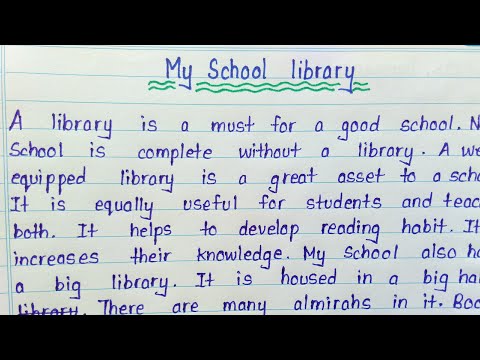 My School library
A library is a must for a good school. N
School is complete without a library. A we
equipped library is a great asset to a scho
It is equally useful for students and teac
both. It helps to develop reading habit. It
increases their knowledge. My School also ha
a big library. It is housed in a big hal
library. There are many almirahs in it. Boo